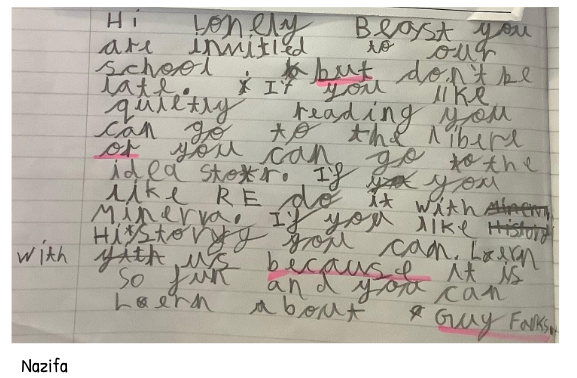 Hi Lonely Beast you
are invitled to our
school. but don't be
late. If you like
quietly reading you
can go to the libere
or you can go to the
idea stoer. If you
like RE do it with
Minerva. If you like History
Hitstory you can. Loern
with us because it is
so fun and you can
Loern about Guy Falks.
Nazifa